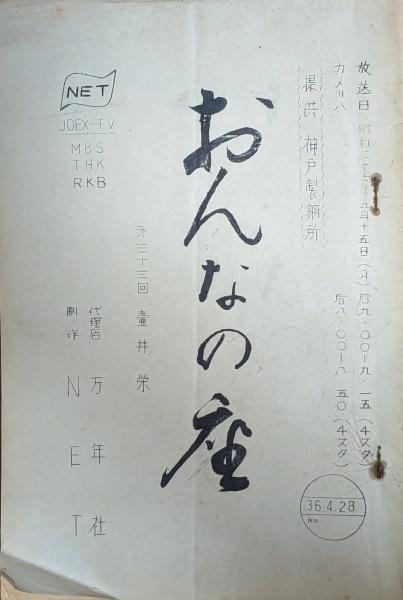 放送日 昭和三十六年五月十五日(月) 后九、〇〇ー九、一五(4スタ)
カメリハ 后八、〇〇ー八、五〇(4スタ)
提供 神戸製鋼所
おんなの座
才三十三回 壷井栄
代理店 万年社
制作 NET
NET
JOEX-TV
MBS
THK
RKB
36.4.28
No